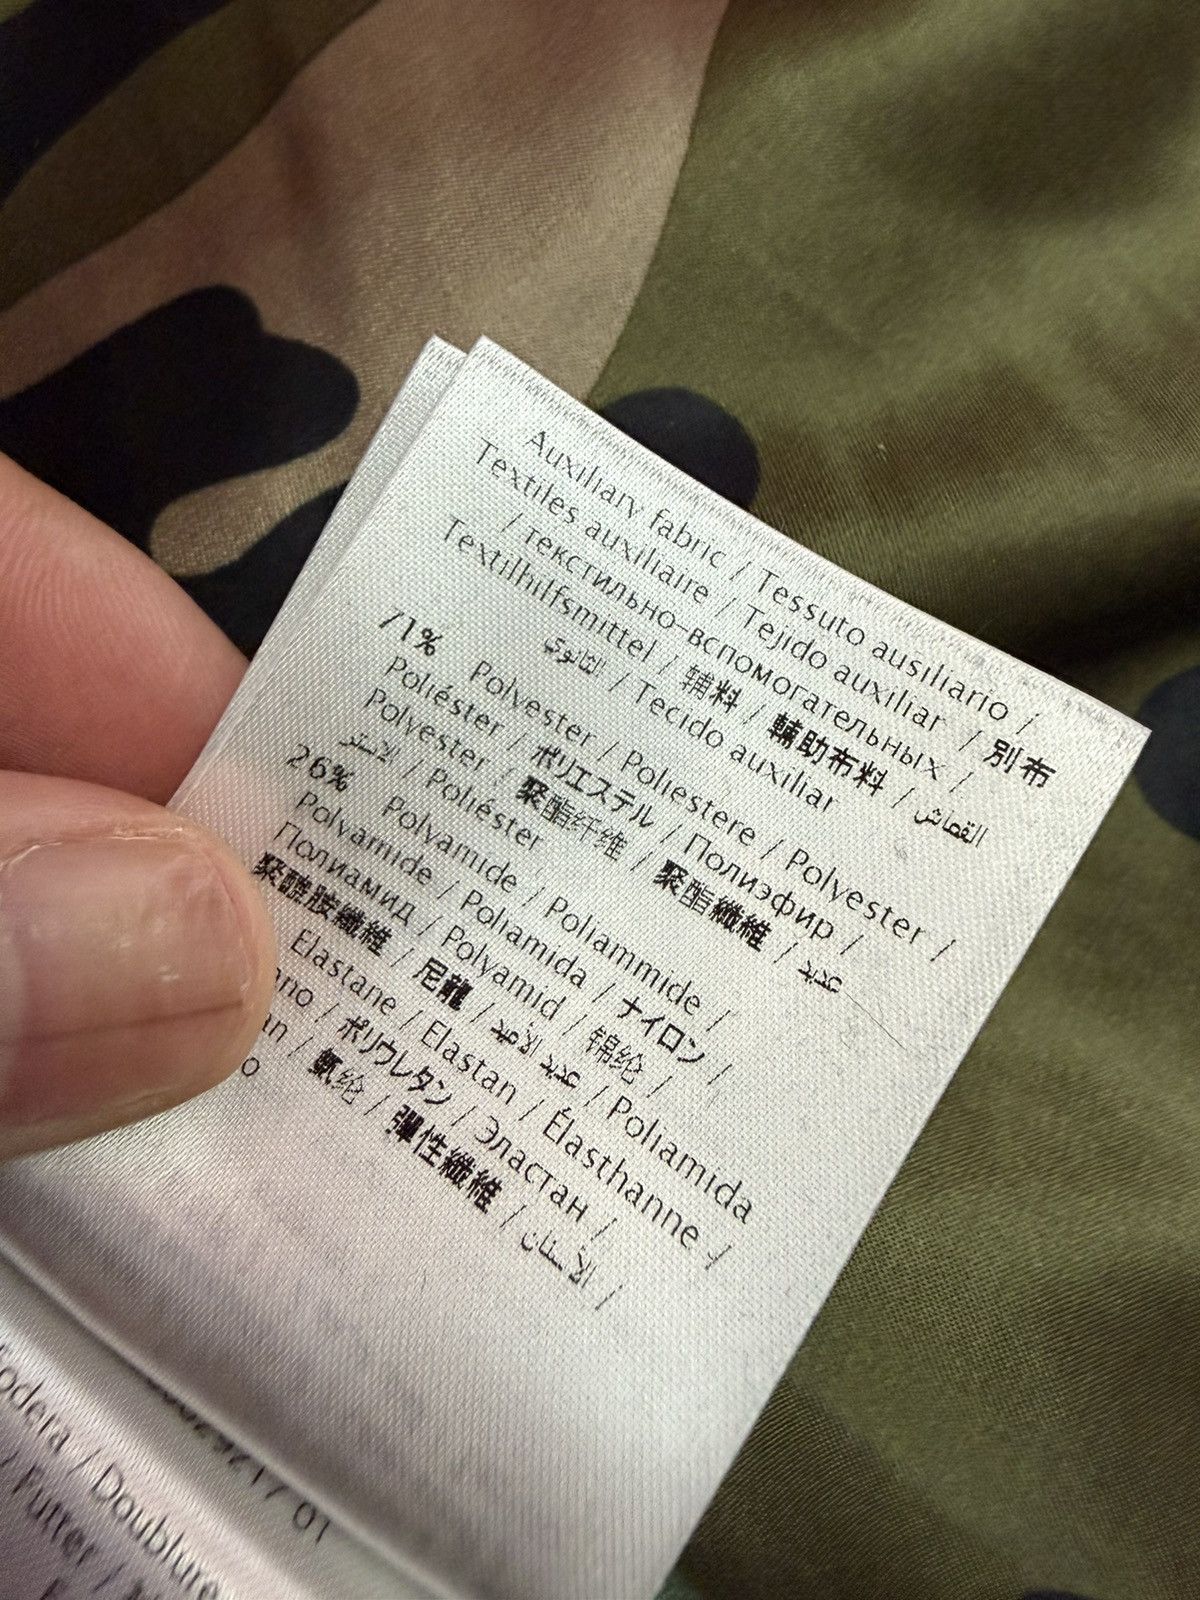 Auxiliary fabric / Tessuto ausiliario /
Textiles auxiliaire / Tejido auxiliar / 別布
/ текстильно-вспомогательных /
Textilhilfsmittel / 辅料 / 輔助布料 / القماش
الثانوي / Tecido auxiliar
71% Polyester / Poliestere / Polyester /
Poliéster / ポリエステル / Полиэфир /
Polyester / 聚酯纤维 / 聚酯纖維 /
/ Poliéster
26% Polyamide / Poliammide /
Polyamide / Poliamida / ナイロン /
Полиамид / Polyamid / 锦纶 /
聚醯胺纖維 / 尼龍 / / Poliamida
Elastane / Elastan / Élasthanne /
ano / ポリウレタン / Эластан /
an / 氨纶 / 彈性纖維 / الاستان /
o
/ 01
odera / Doublure
/ Futter /